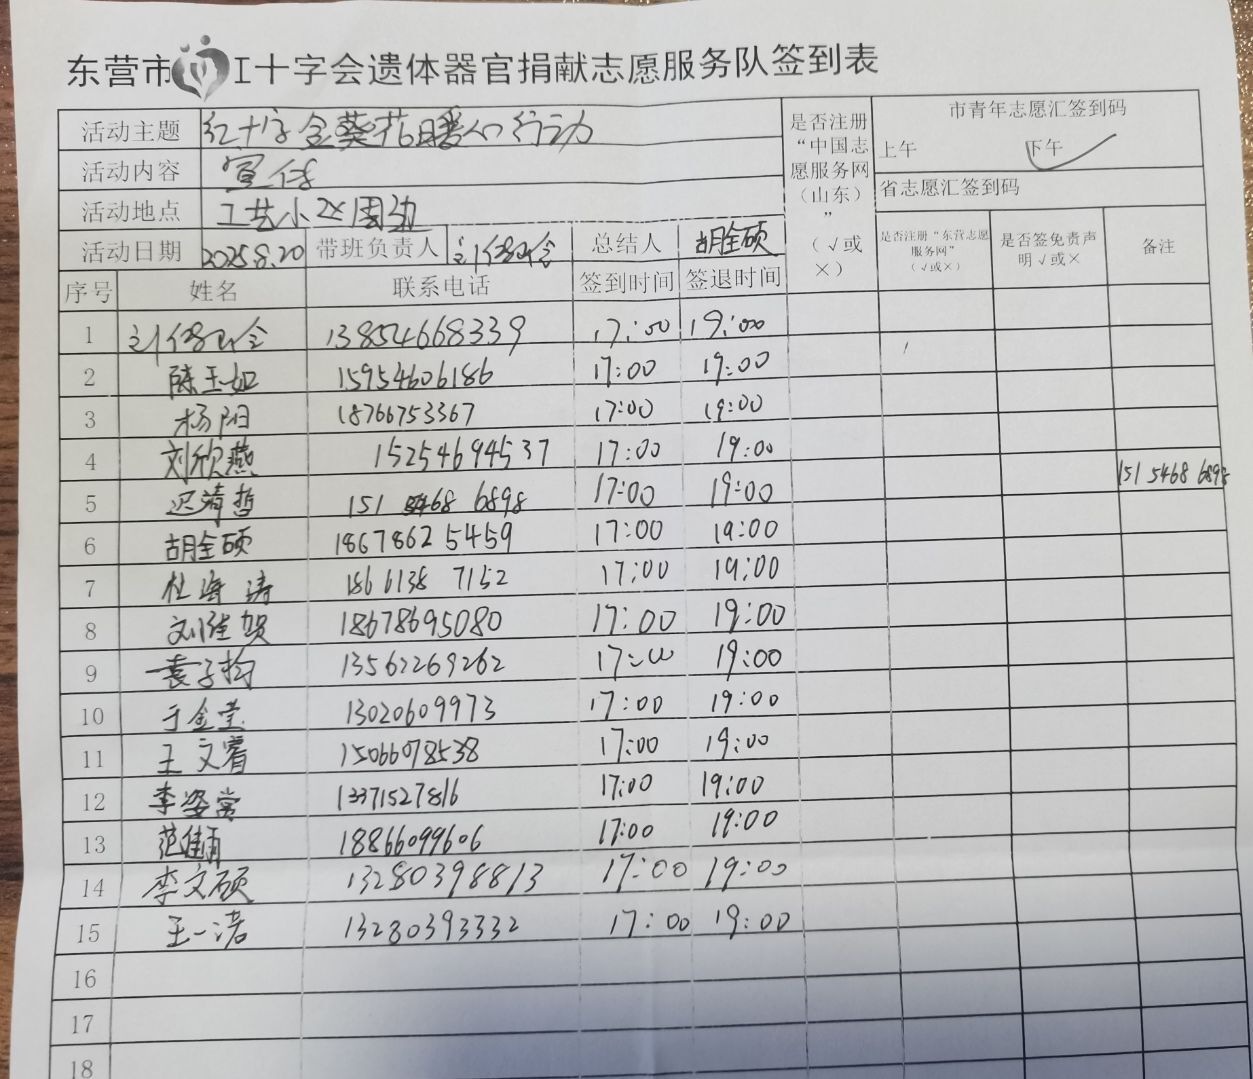 东营市红十字会遗体器官捐献志愿服务队签到表
活动主题 红十字会葵花暖人行动 是否注册“中国志愿服务网（山东）”（√或×） 市青年志愿汇签到码
上午 下午 ✓
活动内容 宣传 省志愿汇签到码
活动地点 工艺小区周边
活动日期 2025.8.20 带班负责人 总结人 胡全硕 是否注册“东营志愿服务网”（√或×） 是否签免责声明√或× 备注
序号 姓名 联系电话 签到时间 签退时间
1 13854668339 17:00 19:00
2 陈玉如 15954606186 17:00 19:00
3 杨阳 18766753367 17:00 19:00
4 刘欣燕 15254694537 17:00 19:00
5 迟清哲 151 5468 6898 17:00 19:00 151 5468 6898
6 胡全硕 18678625459 17:00 19:00
7 杜海涛 186 6138 7152 17:00 19:00
8 刘佳贺 18678695080 17:00 19:00
9 袁子钧 13562269262 17:00 19:00
10 于金莹 13020609973 17:00 19:00
11 王文睿 15066078538 17:00 19:00
12 李姿莹 13371527816 17:00 19:00
13 范佳雨 18866099606 17:00 19:00
14 李文硕 13280398813 17:00 19:00
15 王一诺 13280393332 17:00 19:00
16
17
18